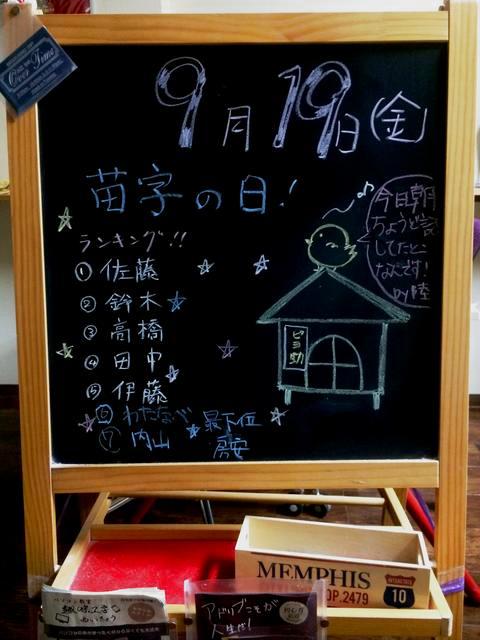 9月19日(金)
苗字の日!
ランキング!!
① 佐藤
② 鈴木
③ 高橋
④ 田中
⑤ 伊藤
⑥ わたなべ
⑦ 内山
最下位
今日朝
ちょうど
してたとこ
なんです!
by 陸
ピヨ助
Over Time
MEMPHIS
OP.2479
10
パソコン教室
アドリブこそが
人生だ!